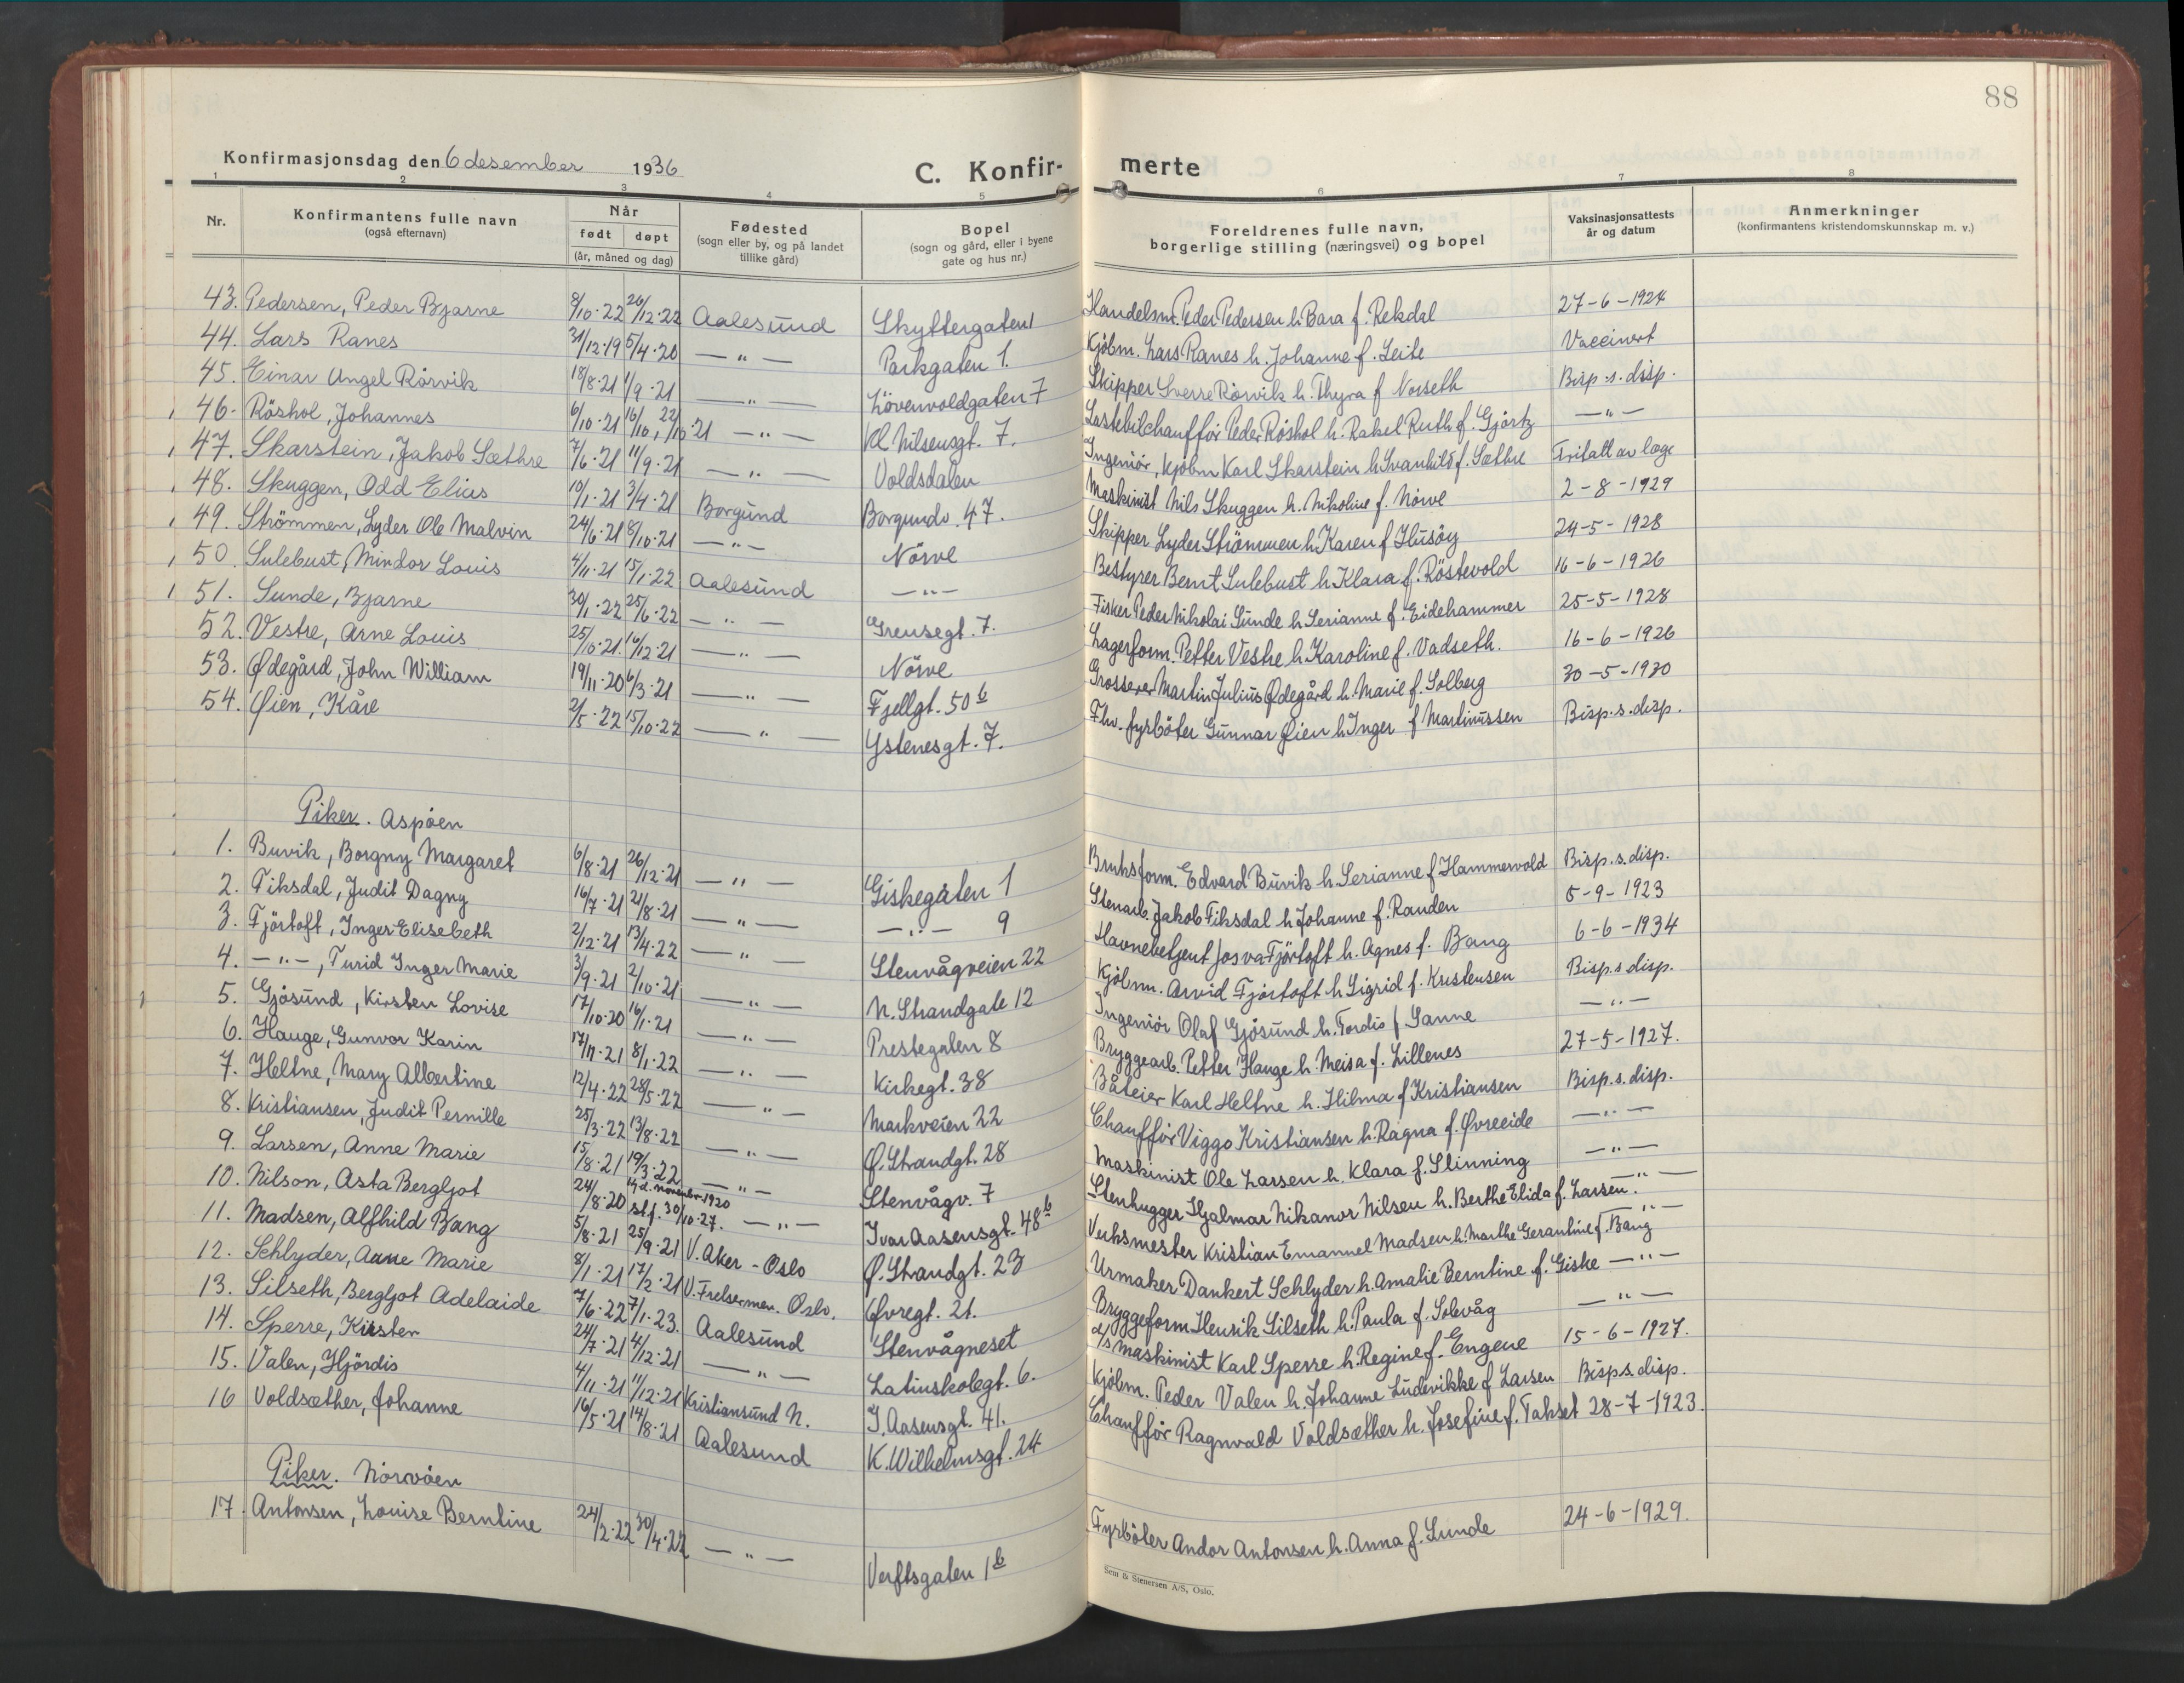 88
Konfirmasjonsdag den 6 desember 1936
C. Konfir- merte
1 2 3 4 5 6 7 8
Nr. Konfirmantens fulle navn (også efternavn) Når født døpt (år, måned og dag) Fødested (sogn eller by, og på landet tillike gård) Bopel (sogn og gård, eller i byene gate og hus nr.) Foreldrenes fulle navn, borgerlige stilling (næringsvei) og bopel Vaksinasjonsattests år og datum Anmerkninger (konfirmantens kristendomskunnskap m. v.)
43. Pedersen, Peder Bjarne 8/10·22 26/12·22 Aalesund Skyttergaten 1 Handelsm. Peder Pedersen h. Bara f. Rekdal 27-6-1924
44. Lars Ranes 31/12·19 5/4·20 —"— Parkgaten 1. Kjöbm. Lars Ranes h. Johanne f. Leite Vaccinert
45. Einar Angel Rörvik 18/8·21 1/9·21 —"— Lövenvoldgaten 7 Skipper Sverre Rörvik h. Thyra f Norseth Bisp.s.disp.
46. Röshol, Johannes 6/10·21 16/10, 22/10·21 —"— Kl. Nilsensgt. 7. Lastebilchafför Peder Röshol h. Rakel Ruth f. Gjörtz —"—
47. Skarstein, Jakob Sæthre 7/6·21 11/9·21 —"— Voldsdalen Ingeniör, kjöbm Karl Skarstein h Svanhild f. Sæthre Fritatt av læge
48. Skuggen, Odd Elias 10/1·21 3/4·21 Borgund Borgundv. 47. Maskinist Nils Skuggen h. Nikoline f. Nörve 2-8-1929
49. Strömmen, Lyder Ole Malvin 24/6·21 8/10·21 —"— Nörve Skipper Lyder Strömmen h. Karen f Husöy 24-5-1928
50. Sulebust, Mindor Louis 4/11·21 15/1·22 Aalesund —"— Bestyrer Bernt Sulebust h. Klara f. Röstevold 16-6-1926
51. Sunde, Bjarne 30/1·22 25/6·22 —"— Grensegt. 7. Fisker Peder Nikolai Sunde h Serianne f. Eidehammer 25-5-1928
52. Vestre, Arne Louis 25/10·21 16/12·21 —"— Nörve Lagerform. Petter Vestre h. Karoline f. Vadseth. 16-6-1926
53. Ødegård, John William 19/11·20 6/3·21 —"— Fjellgt. 50 b Grosserer Martin Julius Ødegård h. Marie f. Solberg 30-5-1930
54. Øien, Kåre 2/5·22 15/10·22 —"— Ystenesgt. 7. Fhv. fyrböter Gunnar Øien h Inger f Martinussen Bisp.s.disp.
Piker. Aspöen
1. Buvik, Borgny Margaret 6/8·21 26/12·21 —"— Giskegaten 1 Bruksform. Edvard Buvik h. Serianne f Hammervold Bisp.s.disp.
2. Fiksdal, Judit Dagny 16/7·21 21/8·21 —"— —"— 9 Stenarb. Jakob Fiksdal h Johanne f. Randen 5-9-1923
3. Fjörtoft, Inger Elisebeth 2/12·21 13/4·22 —"— Stenvågveien 22 Havnebetjent Josva Fjörtoft h. Agnes f. Bang 6-6-1934
4. —"—, Turid Inger Marie 3/9·21 2/10·21 —"— N. Strandgate 12 Kjöbm. Arvid Fjörtoft h Sigrid f. Kristensen Bisp.s disp.
5. Gjösund, Kirsten Lovise 17/10·20 16/1·21 —"— Prestegaten 8 Ingeniör Olaf Gjösund h. Tordis f Sanne —"—
6. Hauge, Gunvor Karin 17/11·21 8/1·22 —"— Kirkegt. 38 Bryggearb. Petter Hauge h. Meisa f. Lillenes 27-5-1927.
7. Heltne, Mary Albertine 12/4·22 28/5·22 —"— Markveien 22 Båteier Karl Heltne h. Hilma f Kristiansen Bisp.s.disp.
8. Kristiansen, Judit Pernille 25/3·22 13/8·22 —"— Ø. Strandgt. 28 Chafför Viggo Kristiansen h. Ragna f. Øvreeide —"—
9. Larsen, Anne Marie 15/8·21 19/3·22 —"— Stenvågv. 7 Maskinist Ole Larsen h. Klara f. Slinning —"—
10. Nilson, Asta Bergljot 24/8·20 14 d. november 1920 st.f. 30/10·27. —"— Ivar Aasensgt. 48 b Stenhugger Hjalmar Nikanor Nilsen h. Berthe Elida f. Larsen. —"—
11. Madsen, Alfhild Bang 5/8·21 25/9·21 V. Aker - Oslo Ø. Strandgt. 23 Verksmester Kristian Emanuel Madsen h. Marthe Gerantine f. Bang —"—
12. Schlyder, Anne Marie 8/1·21 17/2·21 V. Frelsermen. Oslo. Øvregt. 21. Urmaker Dankert Schlyder h. Amalie Berntine f. Giske —"—
13. Silseth, Bergljot Adelaide 7/6·22 7/1·23. Aalesund Stenvågneset Bryggeform Henrik Silseth h. Paula f. Solevåg —"—
14. Sperre, Kirsten 24/7·21 4/12·21 —"— Latinskolegt. 6. d/s Maskinist Karl Sperre h. Regine f. Engene 15-6-1927.
15. Valen, Hjördis 4/11·21 11/12·21 Kristiansund N. I. Aasensgt. 41. Kjöbm. Peder Valen h. Johanne Ludevikke f Larsen Bisp s. disp.
16 Voldsæther, Johanne 16/5·21 14/8·21 Aalesund K. Wilhelmsgt. 24 Chafför Ragnvald Voldsæther h. Josefine f. Takset 28-7-1923.
Piker. Nörvöen
17. Antonsen, Louise Berntine 24/2·22 30/4·22 —"— Verftsgaten 1 b Fyrböter Andor Antonsen h. Anna f. Sunde 24-6-1929.
Sem & Stenersen A/S, Oslo.